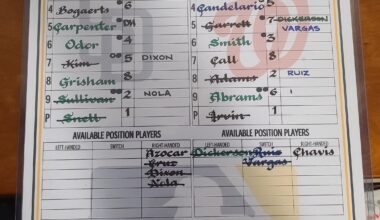 4 Bogaerts 6 4 Candelario 5
5 Carpenter DH 5 Garrett 7 DICKERSON
VARGAS
6 Odor 4 6 Smith 3
7 Kim 5 DIXON 7 Call 8
8 Grisham 8 8 Adams 2 RUIZ
9 Sullivan 2 NOLA 9 Abrams 6
P Snell 1 P Irvin 1
AVAILABLE POSITION PLAYERS AVAILABLE POSITION PLAYERS
LEFT-HANDED SWITCH RIGHT-HANDED LEFT-HANDED SWITCH RIGHT-HANDED
Azocar Dickerson Ruiz Chavis
Cruz Vargas
Dixon
Nola